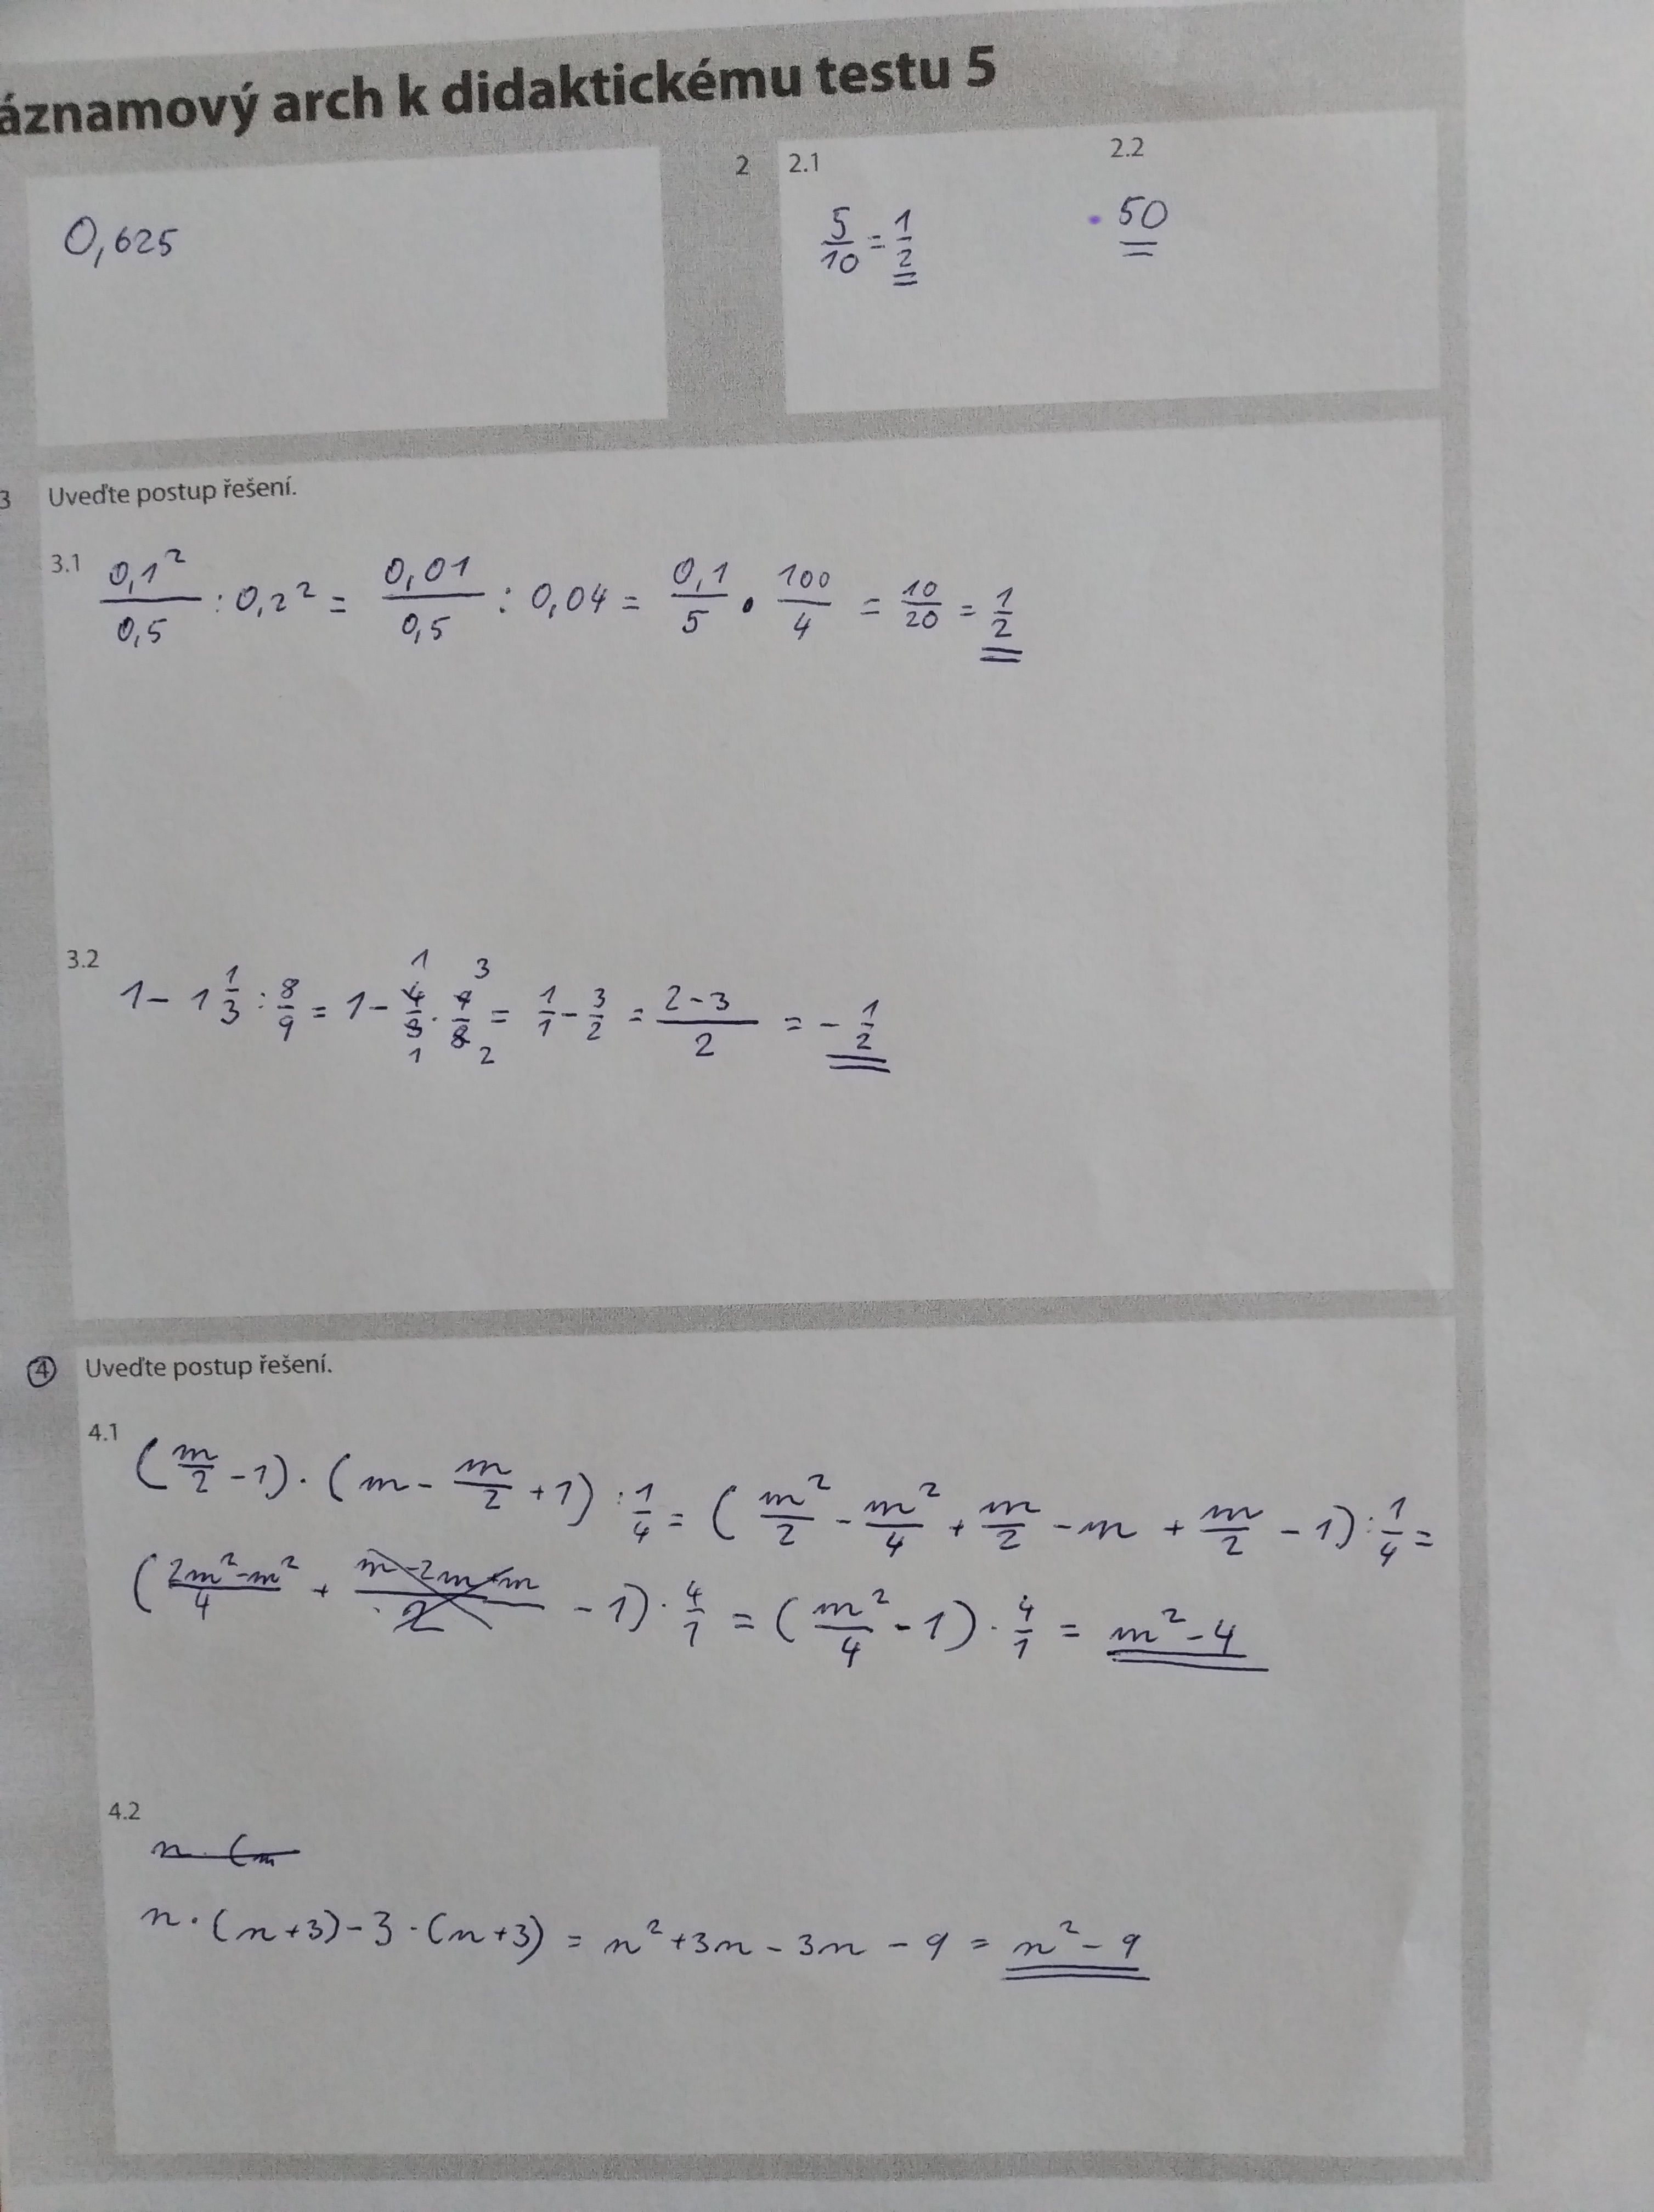 áznamový arch k didaktickému testu 5
0,625
2 2.1 2.2
5/10 = 1/2
50
3 Uveďte postup řešení.
3.1 0,1²/0,5 : 0,2² = 0,01/0,5 : 0,04 = 0,1/5 · 100/4 = 10/20 = 1/2
3.2 1 - 1 1/3 : 8/9 = 1 - 4/3 · 9/8 = 1/1 - 3/2 = 2-3/2 = - 1/2
1 3
1 2
4 Uveďte postup řešení.
4.1 (m/2 - 1) · (m - m/2 + 1) : 1/4 = (m²/2 - m²/4 + m/2 - m + m/2 - 1) : 1/4 =
(2m²-m²/4 + m-2m+m/2 - 1) · 4/1 = (m²/4 - 1) · 4/1 = m² - 4
4.2
n · (n
n · (n+3) - 3 · (n+3) = n² + 3n - 3n - 9 = n² - 9